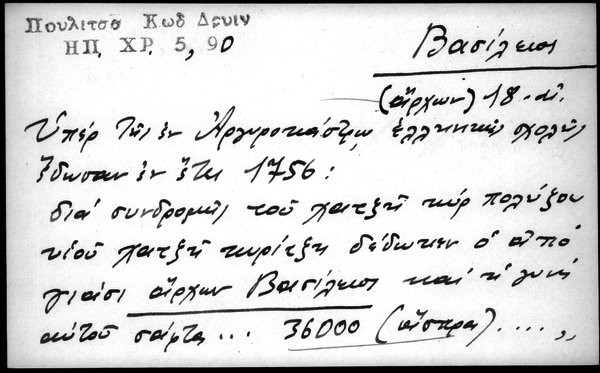 Πουλιτσα Κωδ Δρυιν
ΗΠ. ΧΡ. 5, 90
Βασίλειος
(ἄρχων) 18. αἰ.
Ὑπέρ τῆς ἐν Ἀργυροκάστρῳ ἑλληνικῆς σχολῆς
ἔδωσαν ἐν ἔτει 1756:
διά συνδρομῆς τοῦ χατζῆ κύρ πολύζου
υἱοῦ χατζῆ κυρίτζη δέδωκεν ὁ ἀπό
γιάσι ἄρχων Βασίλειος καί ἡ γυνή
αὐτοῦ σάφτα ... 36000 (ἄσπρα) ....,,